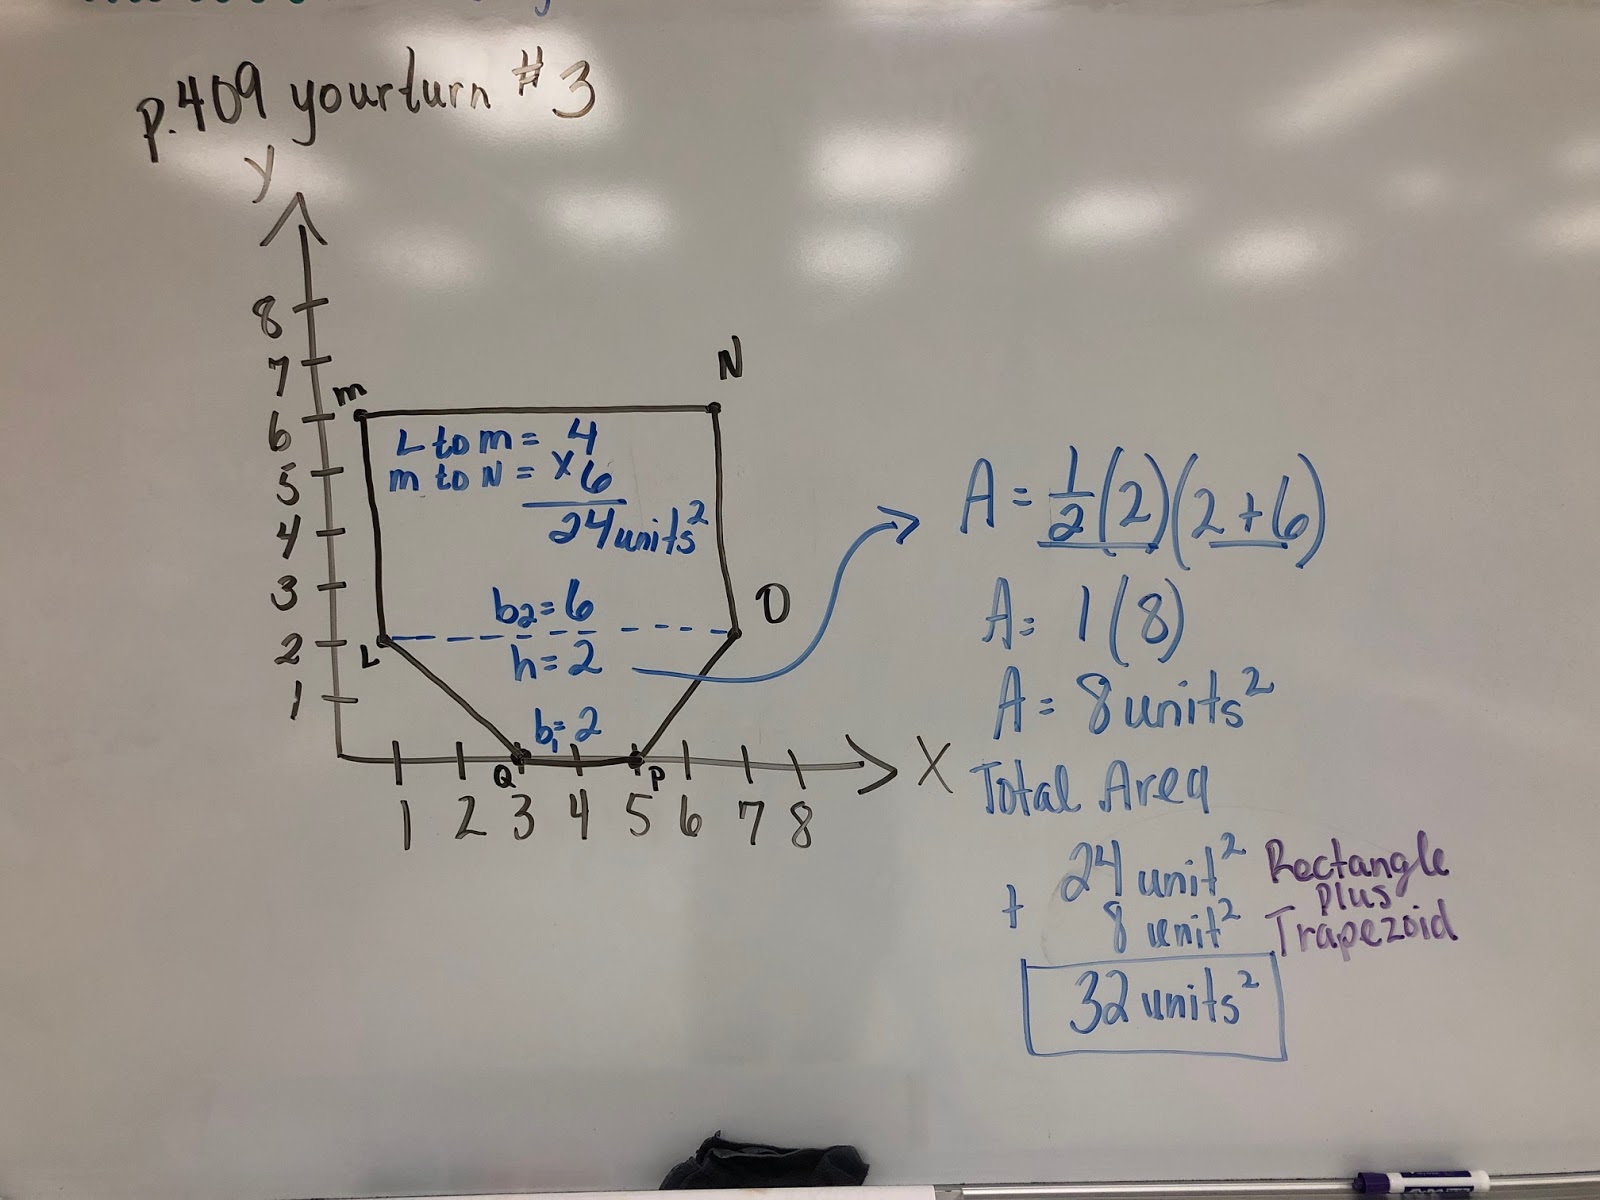 p.409 your turn #3
Y
8
7
6
5
4
3
2
1
m
N
L to m = 4
m to N = x 6
24 units²
b₂ = 6
O
L
h = 2
b₁ = 2
Q
P
X
1 2 3 4 5 6 7 8
A = 1/2 (2)(2+6)
A = 1(8)
A = 8 units²
Total Area
24 unit² Rectangle
plus
+ 8 unit² Trapezoid
32 units²